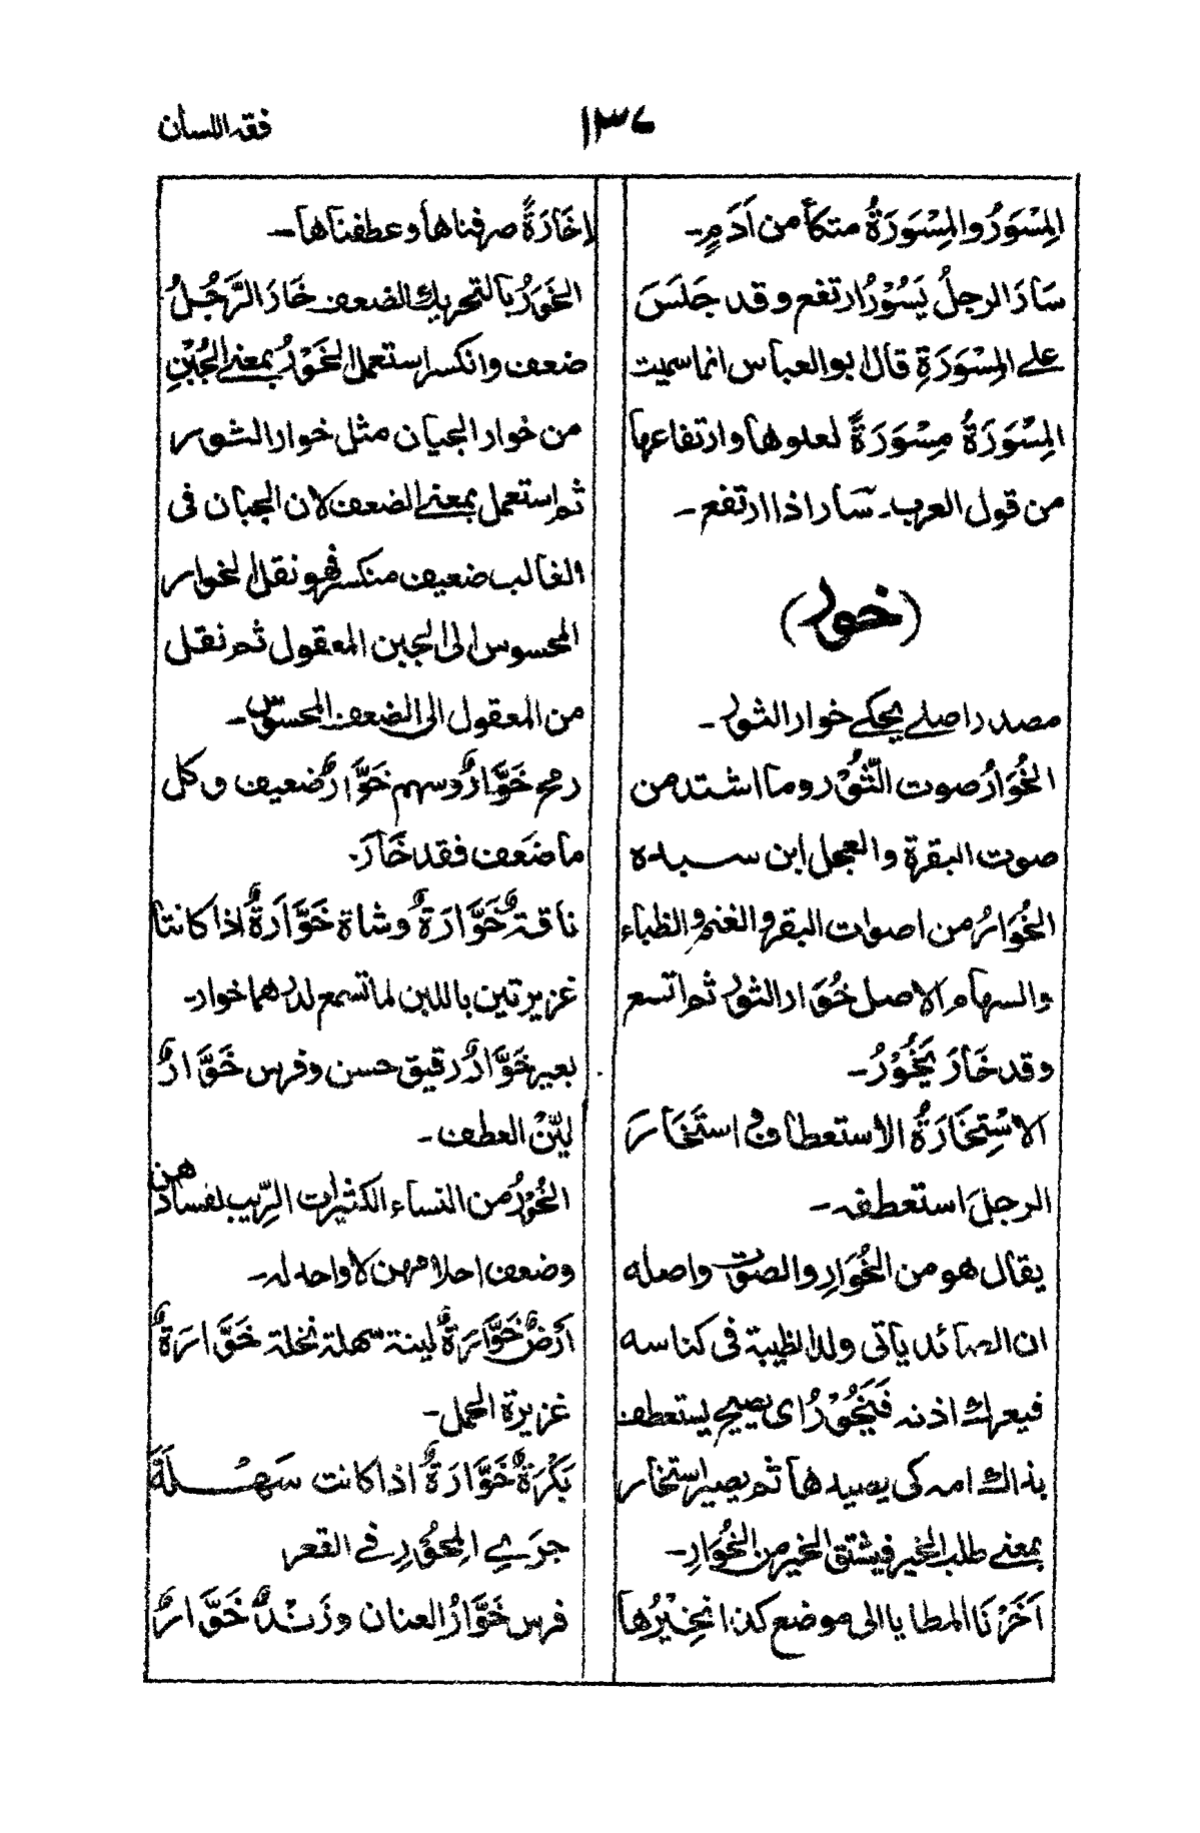 فقه اللسان
١٣٧
المِسْوَرُ والمِسْوَرَةُ متكأ من اَدَمٍ۔
سَارَ الرجلُ يَسُوْرُ ارتفع وقد جَلَسَ
على المِسْوَرَةِ قال ابو العباس انما سميت
المِسْوَرَةُ مِسْوَرَةً لعلوها وارتفاعها
من قول العرب۔ سار اذا ارتفع۔
(خور)
مصدر اصلي يحكي خوار الثور۔
الخُوَارُ صوت الثَّوْر وما اشتد من
صوت البقرة والعجل ابن سيده
الخُوَارُ من اصوات البقر والغنم والظباء
والسهام الاصل خُوَار الثور ثم اتسع
وقد خَارَ يَخُوْرُ۔
الاسْتِخَارَةُ الاستعطاف واستَخَارَ
الرجلَ استعطفه۔
يقال هو من الخُوَارِ والصوت واصله
ان الصائد ياتى ولد الظبية فى كناسه
فيعرك اذنه فَيَخُوْرُ اى يصيح يستعطف
بذاك امه كى يصيدها ثم يصير استخار
بمعنى طلب الخير فيشتق الخير من الخُوَارِ۔
اَخَرْنَا المطايا الى موضع كذا نُخِيْرُها
اِخَارَةً صرفناها وعطفناها۔
الخَوَرُ بالتحريك الضعف خَارَ الرَّجُلُ
ضعف وانكسر استعمل الخَوَرُ بمعنى الجُبْنِ
من خوار الجبان مثل خوار الثور
ثم استعمل بمعنى الضعف لان الجبان فى
الغالب ضعيف منكسر فهو نقل الخوار
المحسوس الى الجبن المعقول ثم نقل
من المعقول الى الضعف المحسوس۔
رمح خَوَّارٌ وسهم خَوَّارٌ ضعيف وكل
ما ضَعف فقد خَارَ۔
ناقة خَوَّارَةٌ وشاة خَوَّارَةٌ اذا كانتا
غزيرتين باللبن لما تسمع لدرهما خوار۔
بعير خَوَّارٌ رقيق حسن وفرس خَوَّارٌ
ليّن العطف۔
الخُوْرُ من النساء الكثيرات الرِّيب لفسادهن
وضعف احلامهن لا واحد له۔
اَرْضٌ خَوَّارَةٌ لينة سهلة نخلة خَوَّارَةٌ
غزيرة الحمل۔
بَكْرَةٌ خَوَّارَةٌ اذا كانت سَهْلَةَ
جَرْيِ المِحْوَرِ في القعر
فرس خَوَّارُ العنان وزَنْدٌ خَوَّارٌ